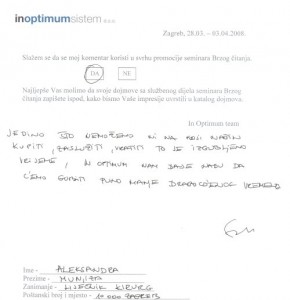 inoptimumsistem d.o.o.
Zagreb, 28.03. – 03.04.2008.
Slažem se da se moj komentar koristi u svrhu promocije seminara Brzog čitanja.
DA NE
Najljepše Vas molimo da svoje dojmove sa službenog dijela seminara Brzog
čitanja zapišete ispod, kako bismo Vaše impresije uvrstili u katalog dojmova.
In Optimum team
JEDINO ŠTO NEMOŽEMO NI NA KOJI NAČIN
KUPITI, ZASLUŽITI, VRATITI TO JE IZGUBLJENO
VRIJEME, IN OPTIMUM NAM DAJE NADU DA
ĆEMO GUBITI PUNO MANJE DRAGOCJENOG VREMENA
Ime - ALEKSANDRA
Prezime -
Zanimanje - LIJEČNIK KIRURG
Poštanski broj i mjesto - 10 000 ZAGREB